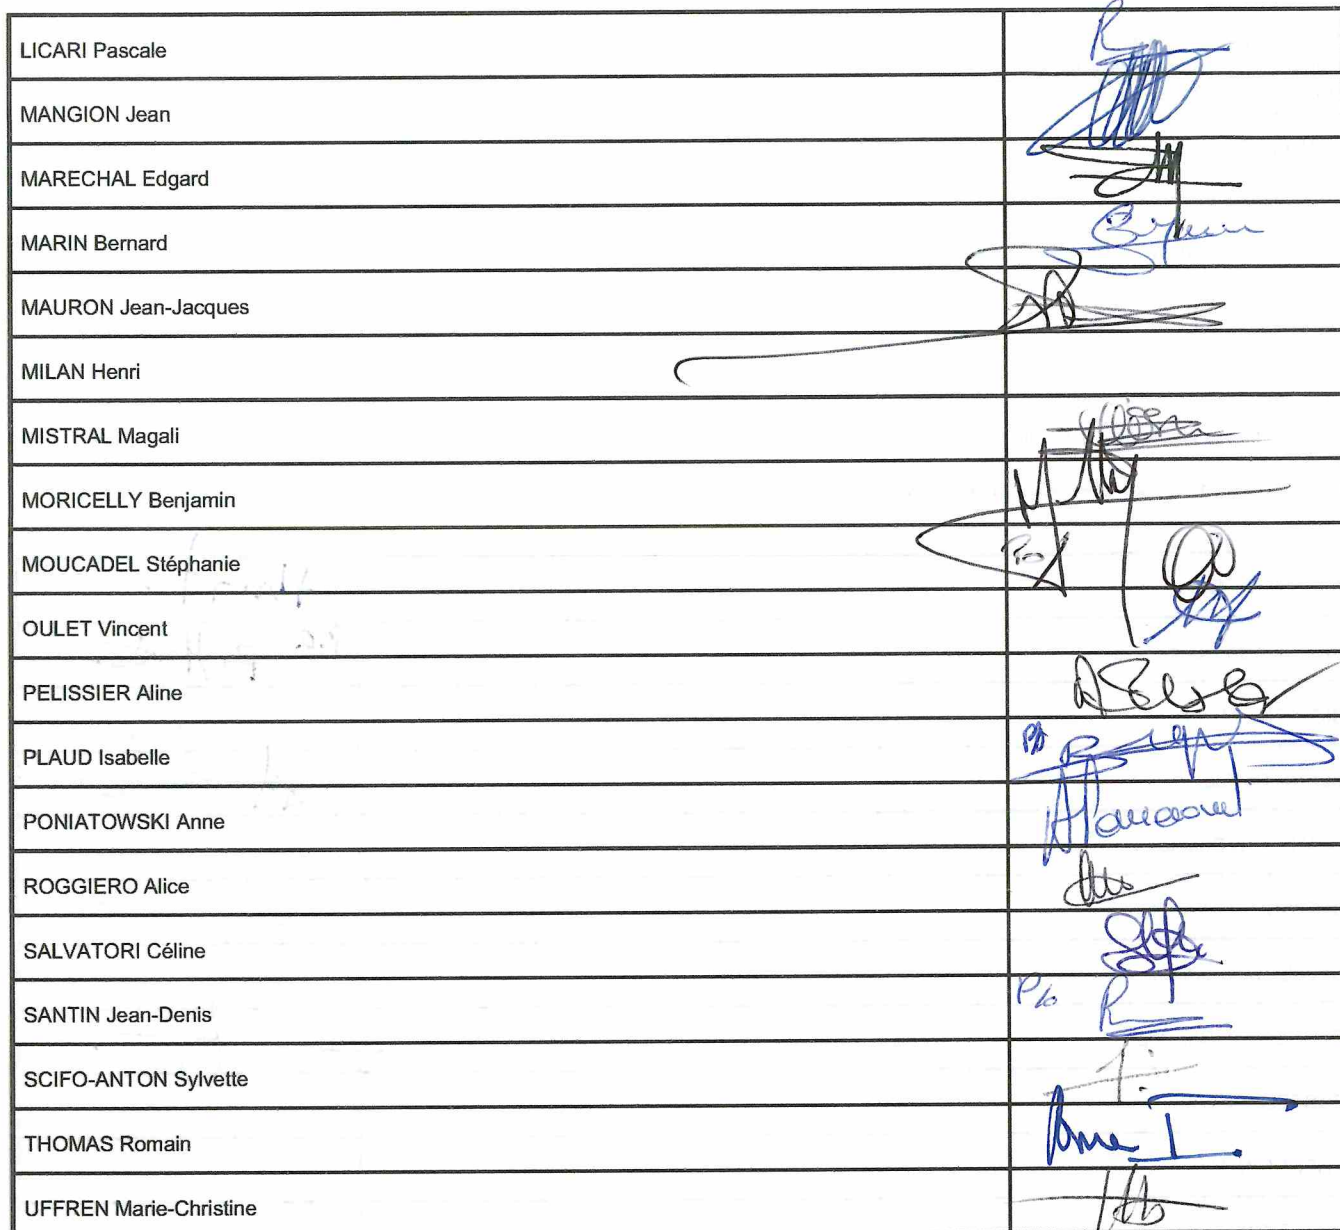 LICARI Pascale
MANGION Jean
MARECHAL Edgard
MARIN Bernard
MAURON Jean-Jacques
MILAN Henri
MISTRAL Magali
MORICELLY Benjamin
MOUCADEL Stéphanie
OULET Vincent
PELISSIER Aline
PLAUD Isabelle
PONIATOWSKI Anne
ROGGIERO Alice
SALVATORI Céline
P/o
SANTIN Jean-Denis
SCIFO-ANTON Sylvette
THOMAS Romain
UFFREN Marie-Christine